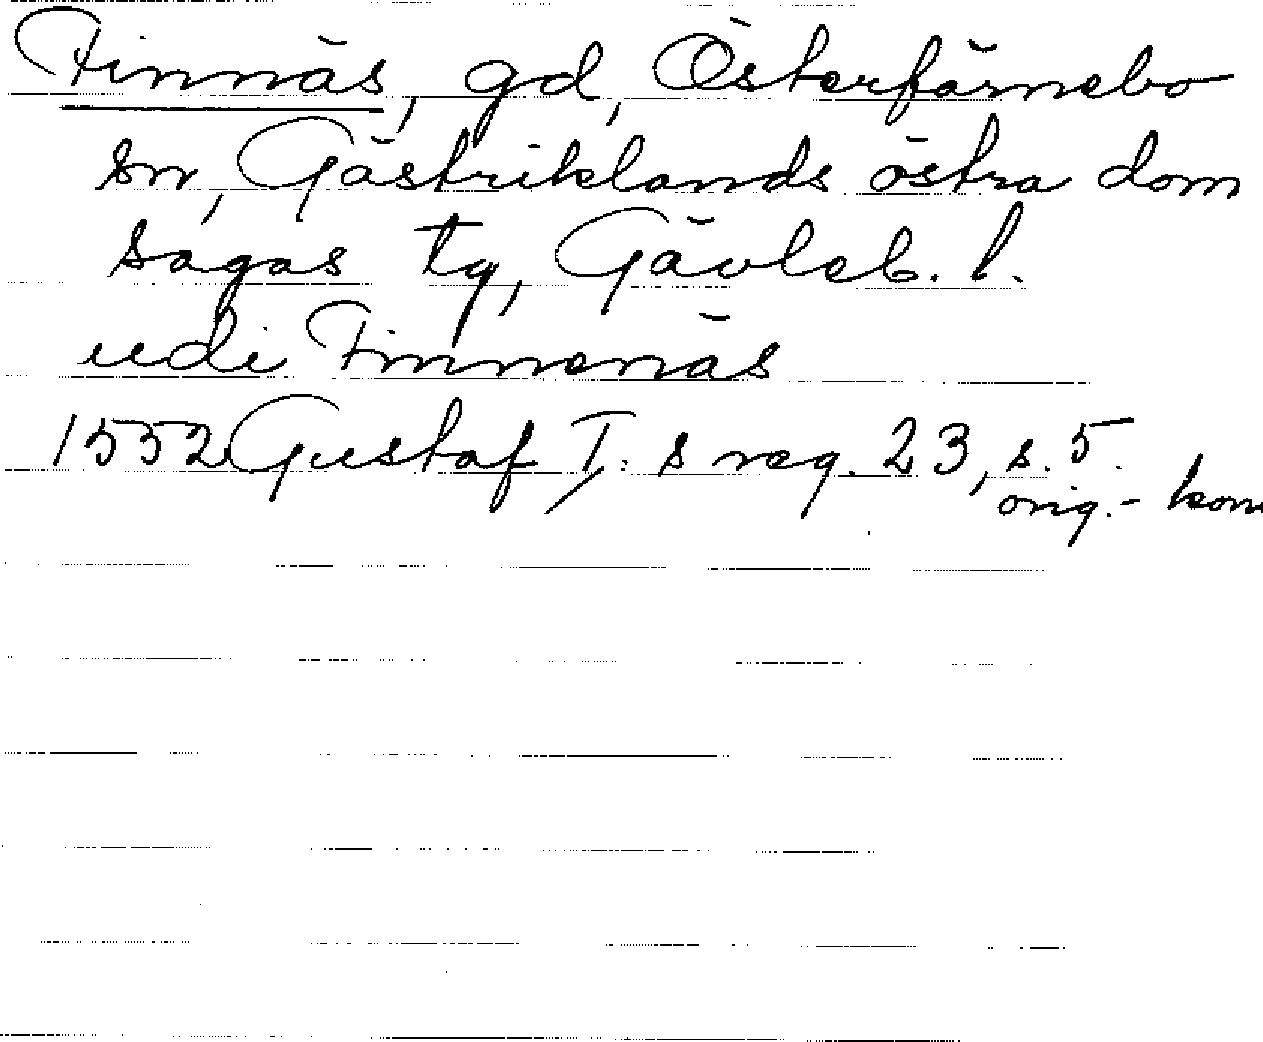 Finnäs, gd, Österfärnebo
sn, Gästriklands östra dom
sagas tg, Gävleb. l.
udi Finnenäs
1552 Gustaf I: s reg. 23, s. 5.
orig.- kon